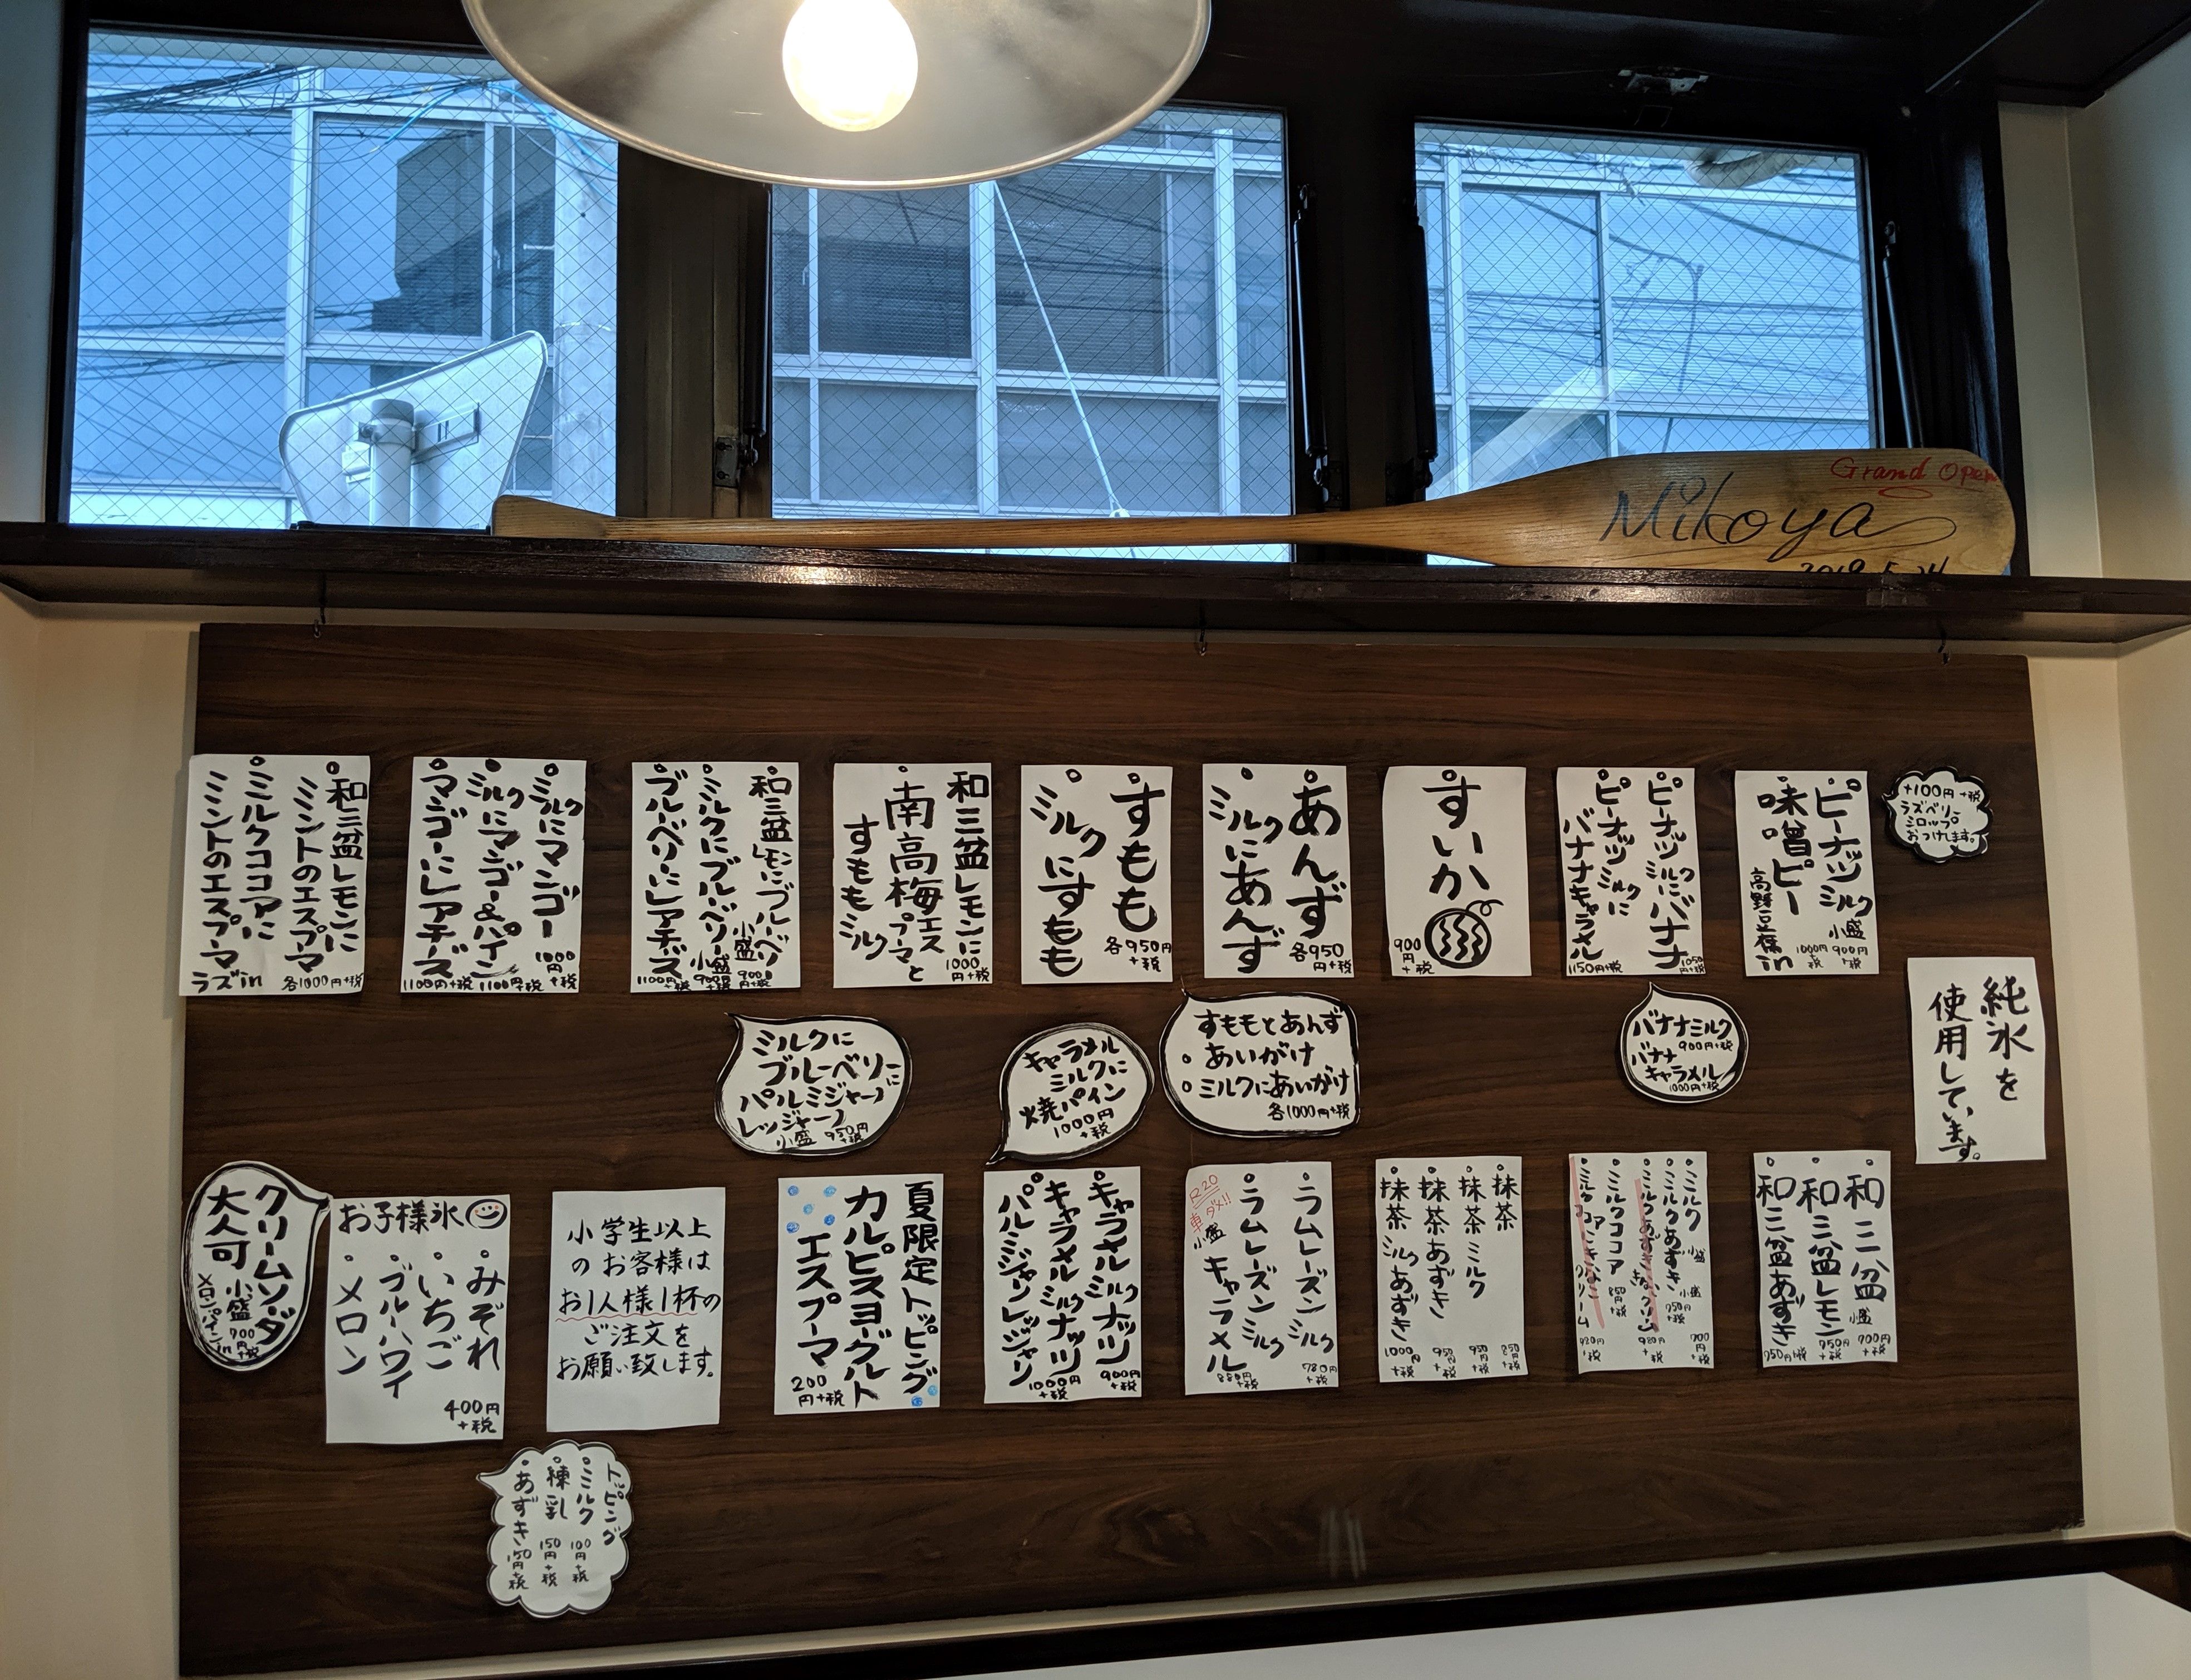 Grand Open
Mikoya
2019.5.24
+100円+税
ラズベリー
シロップ
おつけします。
ピーナッツミルク 小盛 900円+税
味噌ピー 1000円+税
高野豆腐in
ピーナッツミルクにバナナ 1050円+税
ピーナッツミルクに
バナナキャラメル 1150円+税
すいか
900円+税
あんず
ミルクにあんず
各950円+税
すもも
ミルクにすもも
各950円+税
和三盆レモンに
南高梅エスプーマと
すももミルク
1000円+税
和三盆レモンにブルーベリー 小盛 900円+税
ミルクにブルーベリー 小盛 900円+税
ブルーベリーにレアチーズ 1100円+税
ミルクにマンゴー 1000円+税
ミルクにマンゴー&パイン 1100円+税
マンゴーにレアチーズ 1100円+税
和三盆レモンに
ミントのエスプーマ
ミルクココアに
ミントのエスプーマ ラズin
各1000円+税
純氷を
使用しています。
バナナミルク
900円+税
バナナ
キャラメル
1000円+税
すももとあんず
あいがけ
ミルクにあいがけ
各1000円+税
キャラメル
ミルクに
焼パイン
1000円
+税
ミルクに
ブルーベリーに
パルミジャーノ
レッジャーノ
小盛 950円+税
和三盆 小盛 700円+税
和三盆レモン 750円+税
和三盆あずき 750円+税
ミルク 小盛 700円+税
ミルクあずき 小盛 750円+税
ミルクあずききなこクリーム 980円+税
ミルクココア 850円+税
ミルクココアきなこクリーム 980円+税
抹茶 850円+税
抹茶ミルク 950円+税
抹茶あずき 950円+税
抹茶ミルクあずき 1000円+税
ラムレーズンミルク 780円+税
ラムレーズンミルク
キャラメル 880円+税
R20
車ダメ!!
小盛
キャラメルミルクナッツ 900円+税
キャラメルミルクナッツ
パルミジャーノレッジャーノ 1000円+税
夏限定トッピング
カルピスヨーグルト
エスプーマ
200円+税
小学生以上
のお客様は
お1人様1杯の
ご注文を
お願い致します。
お子様氷
みぞれ
いちご
ブルーハワイ
メロン
400円
+税
クリームソーダ
大人可
小盛 700円+税
メロン、パインin
トッピング
ミルク 100円+税
練乳 150円+税
あずき 150円+税